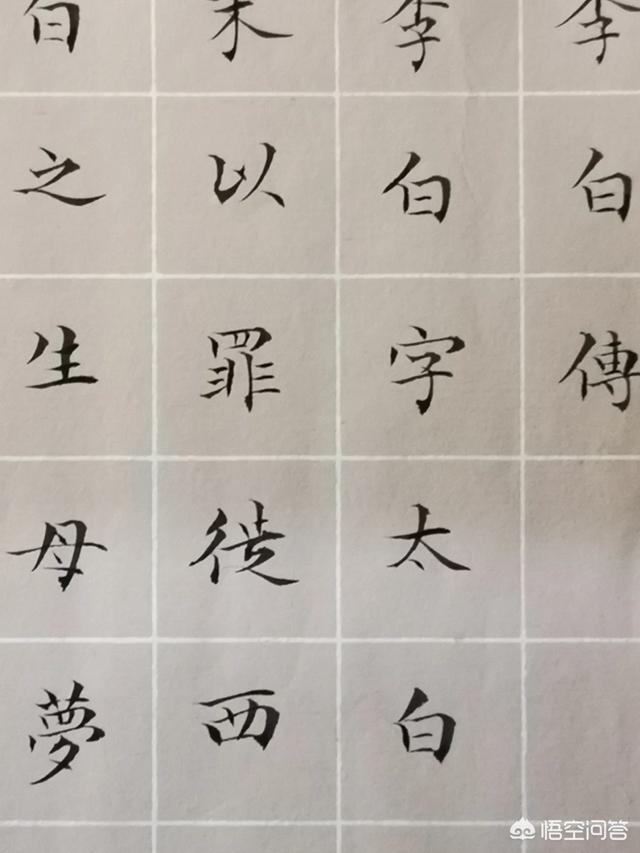 李白傳
李白字太白
末以罪徙西
白之生母夢
悟空问答